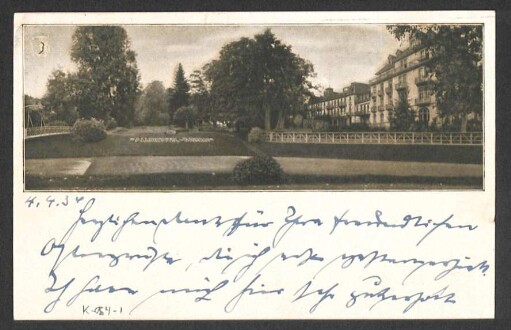 4. 4. 34
Herzlichen Dank für Ihre freundlichen
Ostergrüße, die ich erst gestern erhielt.
Ich habe mich hier sehr gut erholt
K-084-1